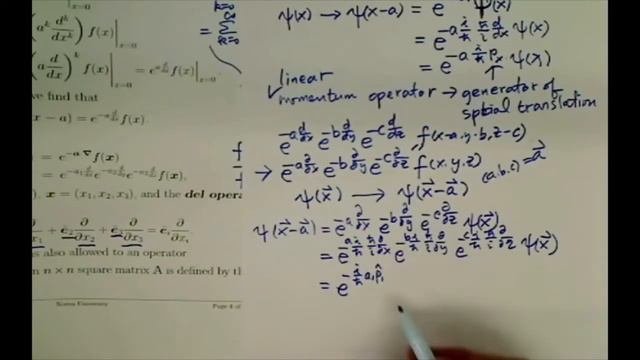 |x=0
a^k d^k/dx^k) f(x)|x=0
(a d/dx)^k f(x)|x=0 = e^{a d/dx} f(x)|x=0.
we find that
x − a) = e^{−a d/dx} f(x).
= e^{−a·∇} f(x)
= e^{−a₁ ∂/∂x₁} e^{−a₂ ∂/∂x₂} e^{−a₃ ∂/∂x₃} f(x),
), x = (x₁, x₂, x₃), and the del opera
∂/∂x₁ + ê₂ ∂/∂x₂ + ê₃ ∂/∂x₃ = ê_i ∂/∂x_i
s also allowed to a determinant
n n × n square matrix A is defined by th
Page 4 of
k=0
= Σ
k=0
ψ(x) → ψ(x-a) = e ψ(x)
= e^{-a i/ħ ħ/i d/dx} ψ(x)
= e^{-a i/ħ p̂_x} ψ(x)
linear
momentum operator → generator of
spatial translation
e^{-a ∂/∂x} e^{-b ∂/∂y} e^{-c ∂/∂z} f(x-a, y-b, z-c)
→ e^{-a ∂/∂x} e^{-b ∂/∂y} e^{-c ∂/∂z} f(x,y,z)
(a,b,c) = a⃗
ψ(x⃗) → ψ(x⃗-a⃗)
ψ(x⃗-a⃗) = e^{-a ∂/∂x} e^{-b ∂/∂y} e^{-c ∂/∂z} ψ(x⃗)
= e^{-a i/ħ ħ/i ∂/∂x} e^{-b i/ħ ħ/i ∂/∂y} e^{-c i/ħ ħ/i ∂/∂z} ψ(x⃗)
= e^{-i/ħ a₁p̂₁}